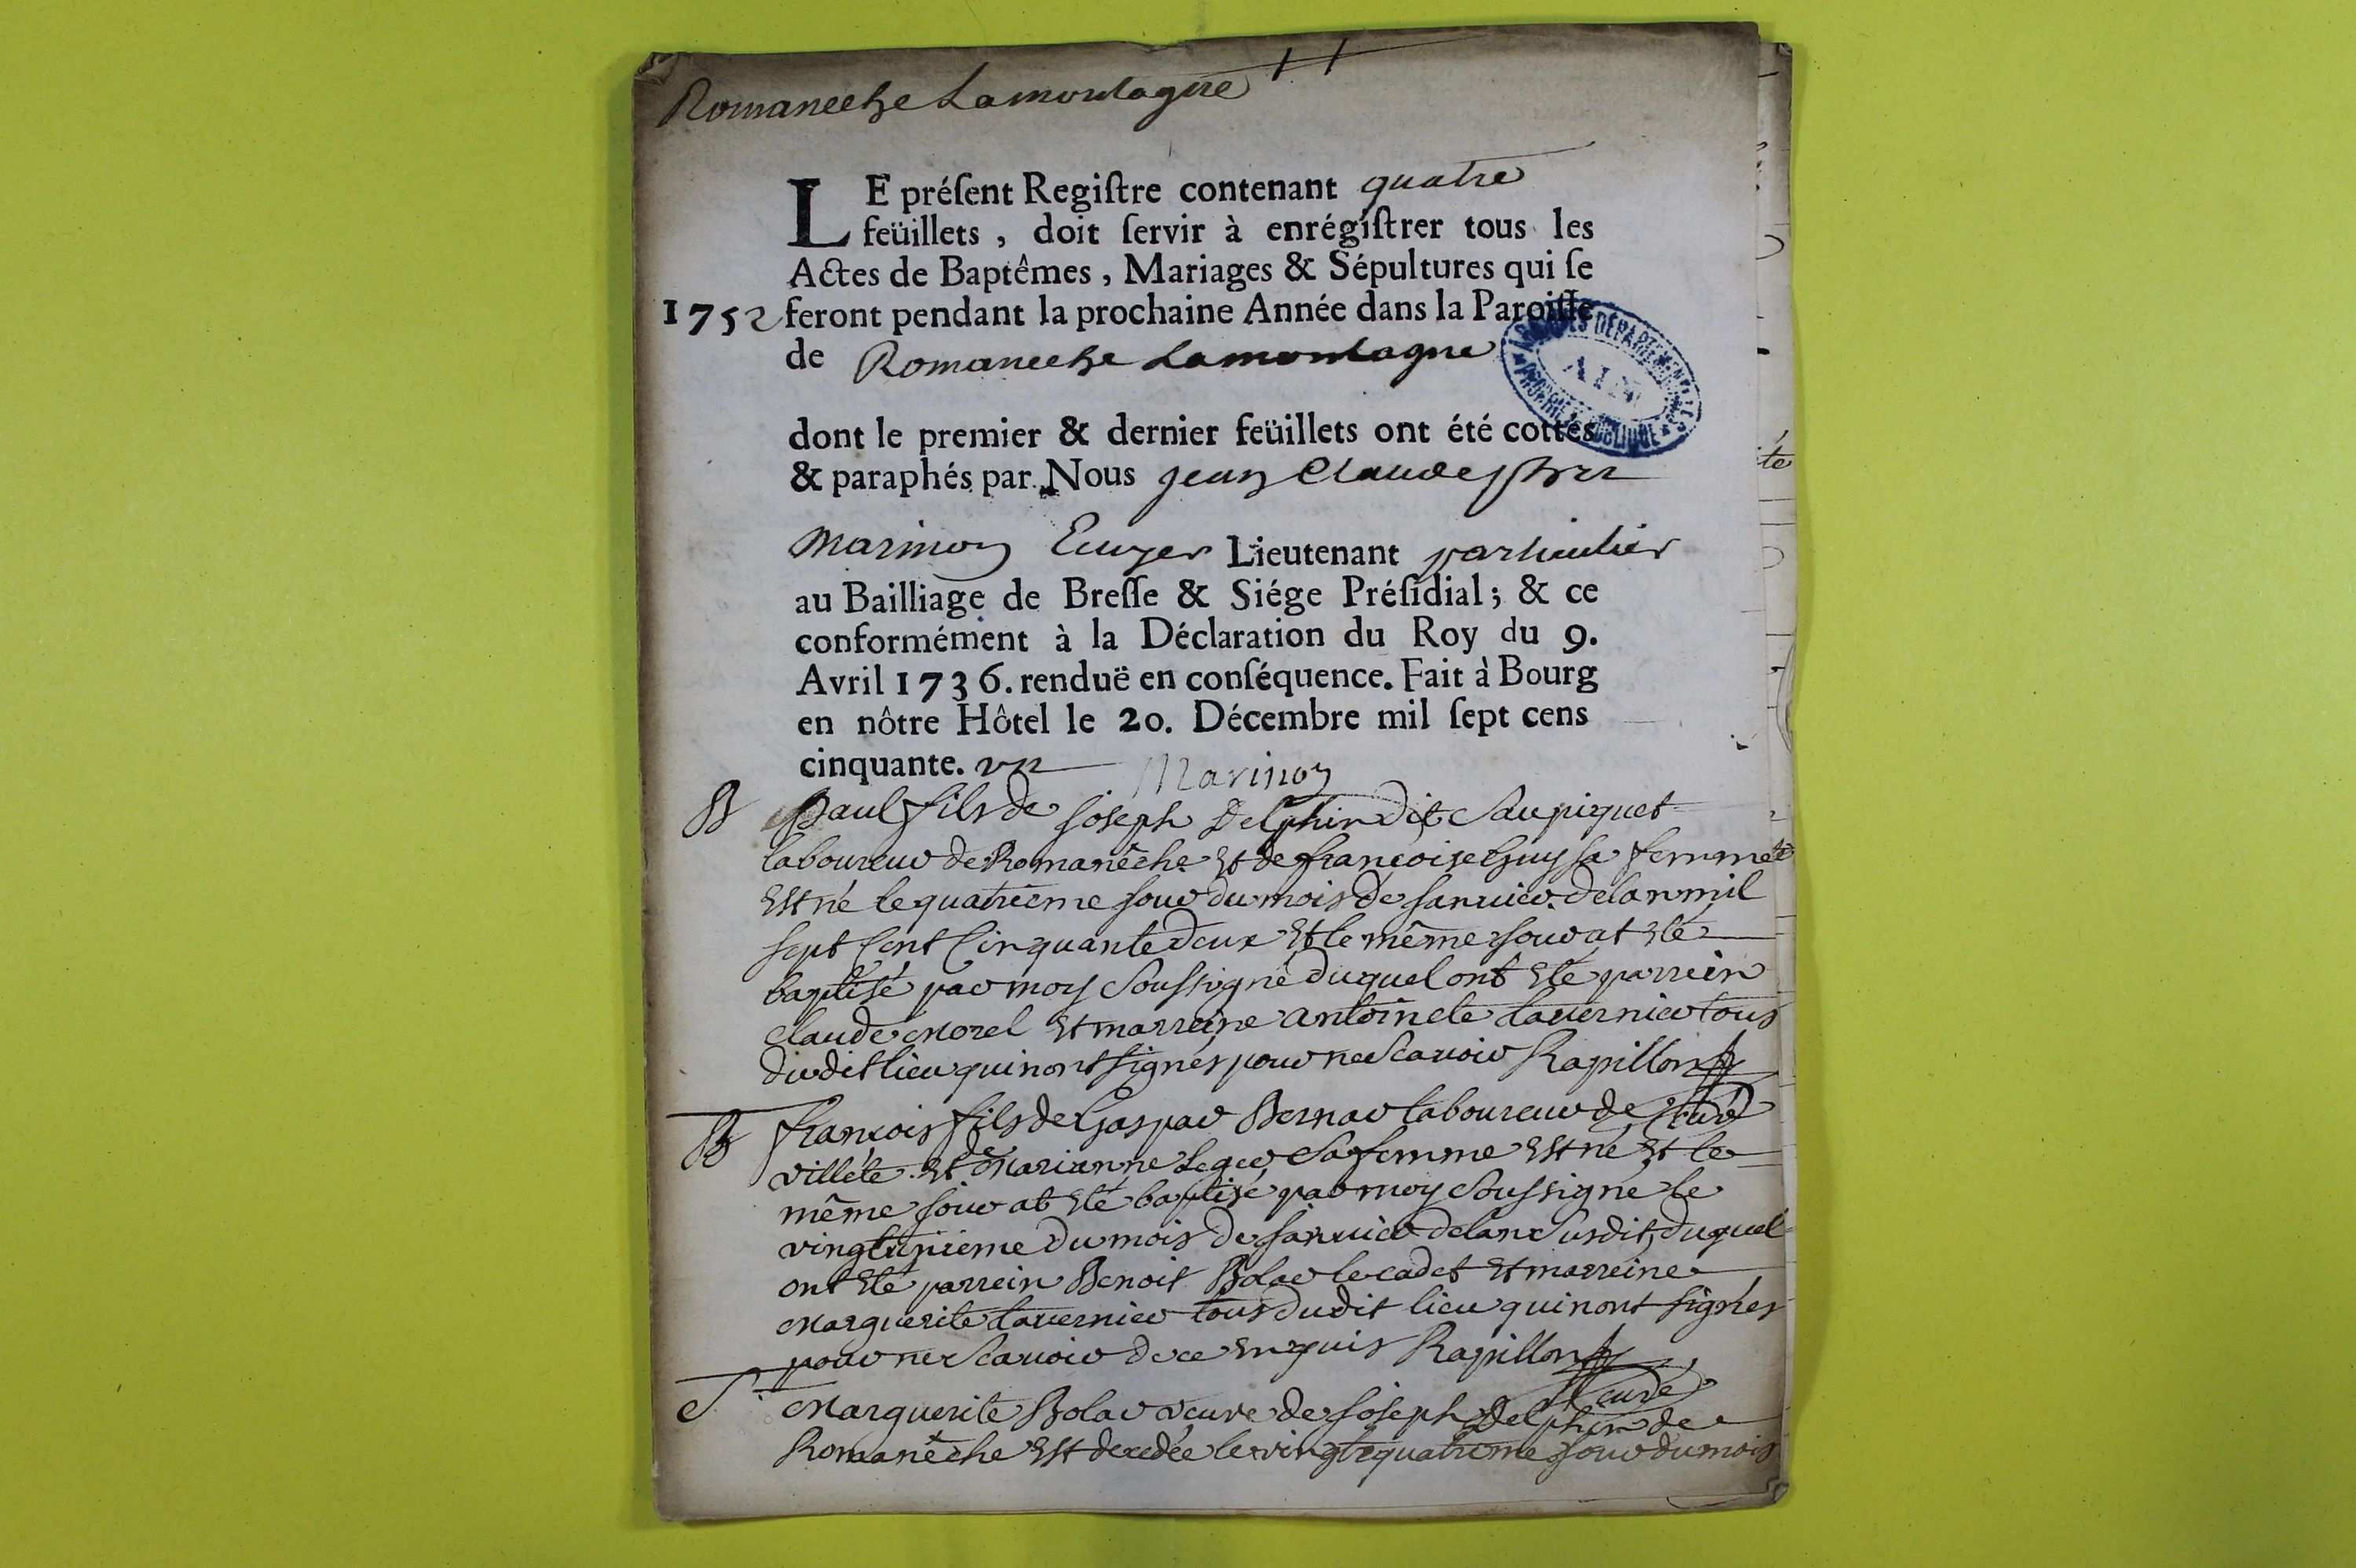 Romaneche Lamontagne
LE préſent Regiſtre contenant quatre
feüillets, doit ſervir à enrégiſtrer tous les
Actes de Baptêmes, Mariages & Sépultures qui ſe
1752 feront pendant la prochaine Année dans la Paroiſſe
de Romaneche Lamontagne
dont le premier & dernier feüillets ont été cottés
& paraphés par Nous Jean Claude
Marinon Ecuyer Lieutenant particulier
au Bailliage de Breſſe & Siége Préſidial; & ce
conformément à la Déclaration du Roy du 9.
Avril 1736. renduë en conſéquence. Fait à Bourg
en nôtre Hôtel le 20. Décembre mil ſept cens
cinquante. un Marinon
B Paul fils de Joseph Delphin dit Saupiquet
laboureur de Romanêche et de françoise Guy sa femme
est né le quatrieme jour du mois de janvier de lan mil
sept cent cinquante deux et le même jour at eté
baptisé par moy soussigné duquel ont eté parrein
claude Morel et marreine antoinete tavernier tous
dudit lieu qui nont signés pour ne scavoir Rapillon
curé
B françois fils de Gaspar Bernar laboureur de
villete et de Marianne Leger sa femme est né et le
même jour at eté baptisé par moy soussigné le
vingtunieme du mois de janvier de lan susdit, duquel
ont eté parrein Benoit Bolar le cadet et marreine
Marguerite tavernier tous dudit lieu qui nont signés
pour ne scavoir de ce enquis Rapillon
curé
S Marguerite Bolar veuve de Joseph Delphin de
Romanêche est decedée le vingtquatrieme jour du mois
ARCHIVES DÉPARTEMENTALES
AIN
PROPRIÉTÉ PUBLIQUE
té